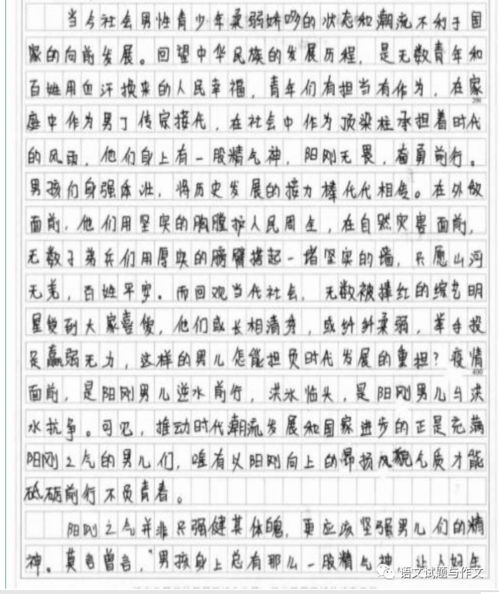 当今社会男性青少年柔弱娇的状态和潮流不利于国
家的向前发展。回望中华民族的发展历程，是无数青年和
百姓用血汗换来的人民幸福，青年们有担当有作为，在家
200
庭中作为男丁传宗接代，在社会中作为顶梁柱承担着时代
的风雨，他们身上有一股精气神，阳刚无畏，奋勇前行。
男孩们身强体壮，将历史发展的接力棒代代相传。在外敌
面前，他们用坚实的胸膛护人民周全，在自然灾害面前，
无数子弟兵们用厚实的臂膀搭起一堵坚实的墙，只愿山河
无恙，百姓平安。而回观当代社会，无数被捧红的综艺明
星受到大家喜爱，他们或长相清秀，或纤纤柔弱，举手投
足羸弱无力，这样的男儿怎能担负时代发展的重担？疫情
400
面前，是阳刚男儿逆水前行，洪水临头，是阳刚男儿与洪
水抗争。可见，推动时代潮流发展和国家进步的正是充满
阳刚之气的男儿们，唯有以阳刚向上的昂扬风貌气质才能
砥砺前行不负青春。
阳刚之气并非只强健其体魄，更应该坚强男儿们的精
神。莫言曾言，"男孩身上总有那么一股精气神，让人好生
语文试题与作文